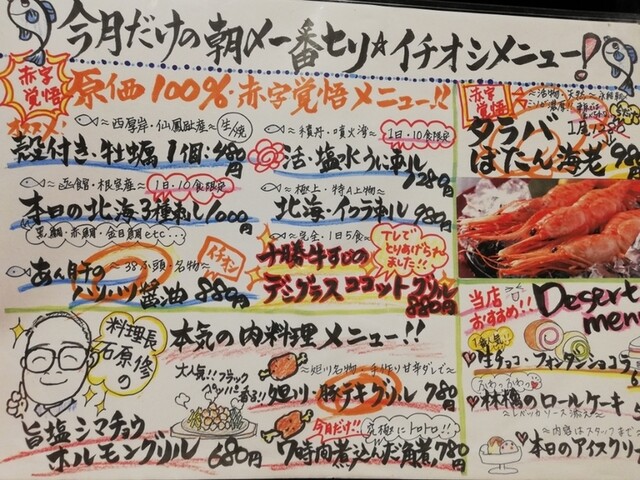 今月だけの朝〆一番セリ☆イチオシメニュー!
赤字覚悟
原価100%・赤字覚悟メニュー!!
オススメ!
≈西厚岸・仙鳳趾産≈ 生/焼
殻付き・牡蠣1個・480円
≈函館・根室産≈ 1日・10食限定
本日の北海3種刺し 1000円
黒鯛・赤鯛・金目鯛etc...
≈38ふ頭・名物≈ イチオシ
あん肝のパツパツ醤油 880円
≈積丹・噴火湾≈ 1日・10食限定
活・塩水うに刺し 1280円
≈極上・特A上物≈
北海・イクラ刺し 980円
≈完全・1日5食≈
TVでとりあげられました!!
十勝牛すじの
デミグラスココットグリル 880円
赤字覚悟
≈活物・天然≈
1尾1280
タラバ
ぼたん海老 98
料理長
石原修の
本気の肉料理メニュー!!
大人気!!ブラックペッパー香る!!
旨塩シマチョウ
ホルモングリル 680円
≈担川名物・手作り甘辛ダレで≈
担川・豚テキグリル 780円
今月だけ!! 究極にトロトロ!!
7時間煮込んだ角煮 780円
当店おすすめ!!
Dessert menu
1番人気!!
生チョコ・フォンダンショコラ
かわっかわっ
林檎のロールケーキ
内容はスタッフまで
本日のアイスクリ